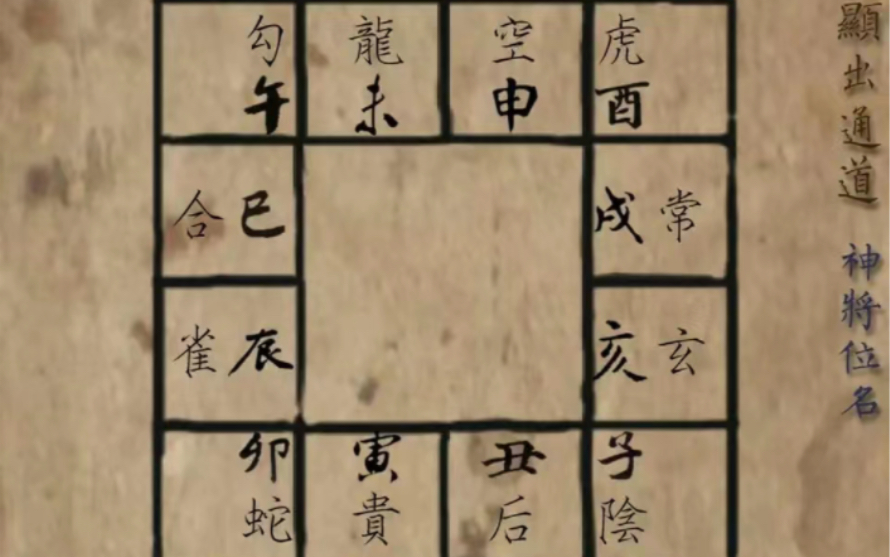 勾 龍 空 虎
午 未 申 酉
合 巳 戌 常
雀 辰 亥 玄
卯 寅 丑 子
蛇 貴 后 陰
顯出通道 神將位名